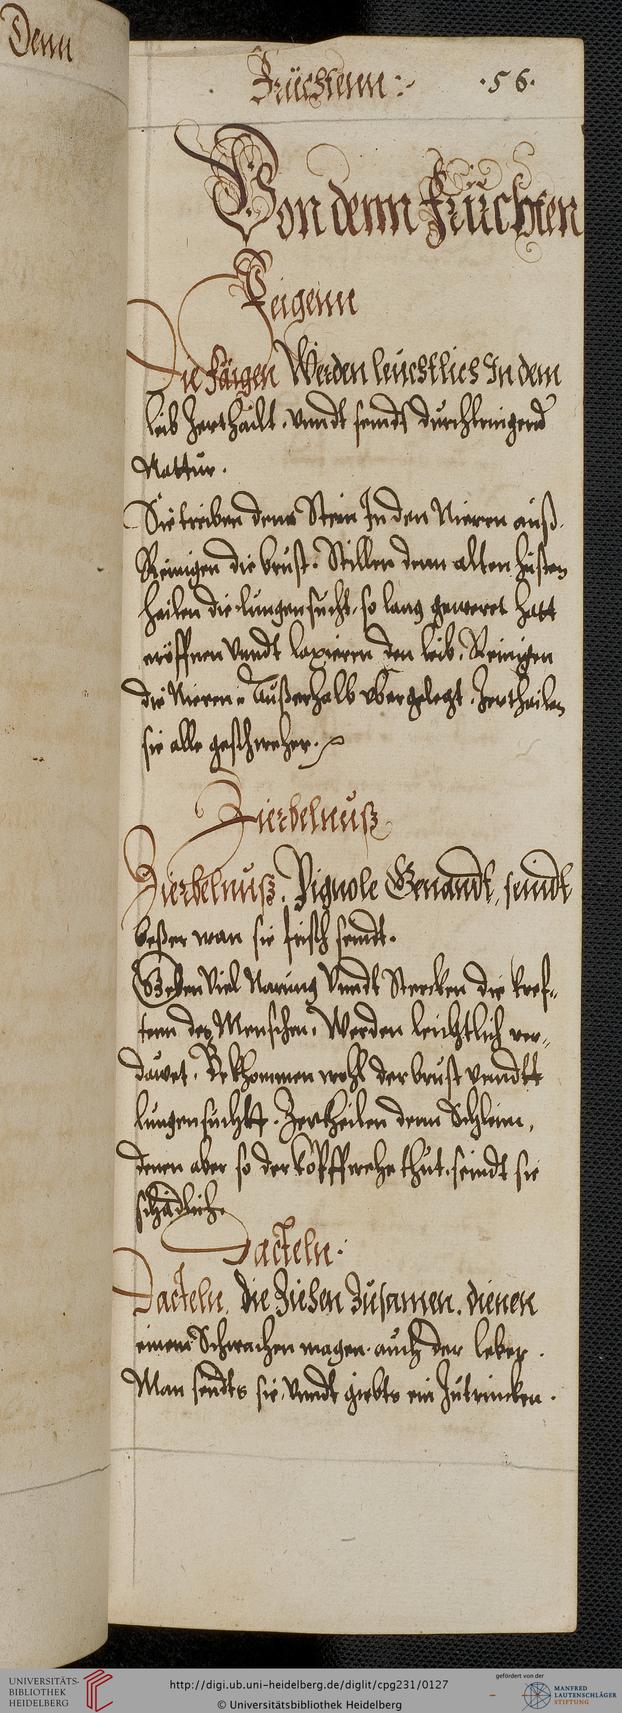 Denn
Früchtenn :~
·56·
Von denn Früchten
Feigenn
Die Fäigen Werden leuchtlich In dem
leib Zerthailt, vnndt seindt durchtringend
Nattur.
Sie treiben denn Stein In den Nieren auß.
Reinigen die brust. Stillen denn alten husten
heilen die lungensucht, so lang geweret hatt
eröffnen vnndt laxieren den leib. Reinigen
die Nieren. Außerhalb vbergelegt. Zertheilen
sie alle geschweher.
Zierbelnuß
Zierbelnuß. Pignole Genandt, seindt
beßer wan sie frisch seindt.
Geben Viel Narung Vnndt Stercken die kref-
tenn des Menschen. Werden leichtlich ver-
dauwet. Bekhommen wohl der brust vnndt
lungensucht. Zertheilen denn Schleim,
denen aber so der kopff wehe thut, seindt sie
schädlich.
Dacteln.
Dacteln. die Ziehen Zusamen. dienen
einem Schwachen magen. auch der leber.
Man seudts sie, vnndt giebts ein Zutrincken.
UNIVERSITÄTS-
BIBLIOTHEK
HEIDELBERG
http://digi.ub.uni-heidelberg.de/diglit/cpg231/0127
© Universitätsbibliothek Heidelberg
gefördert von der
MANFRED
LAUTENSCHLÄGER
STIFTUNG